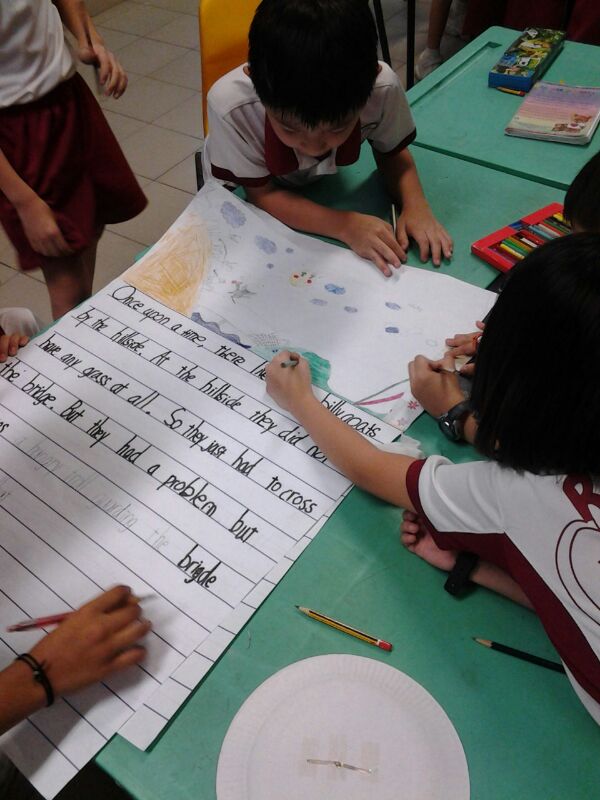 Once upon a time, there billy goats
by the hillside. At the hillside they did not
have any grass at all. So they just had to cross
the bridge. But they had a problem but
a hungry troll guarding the brigde